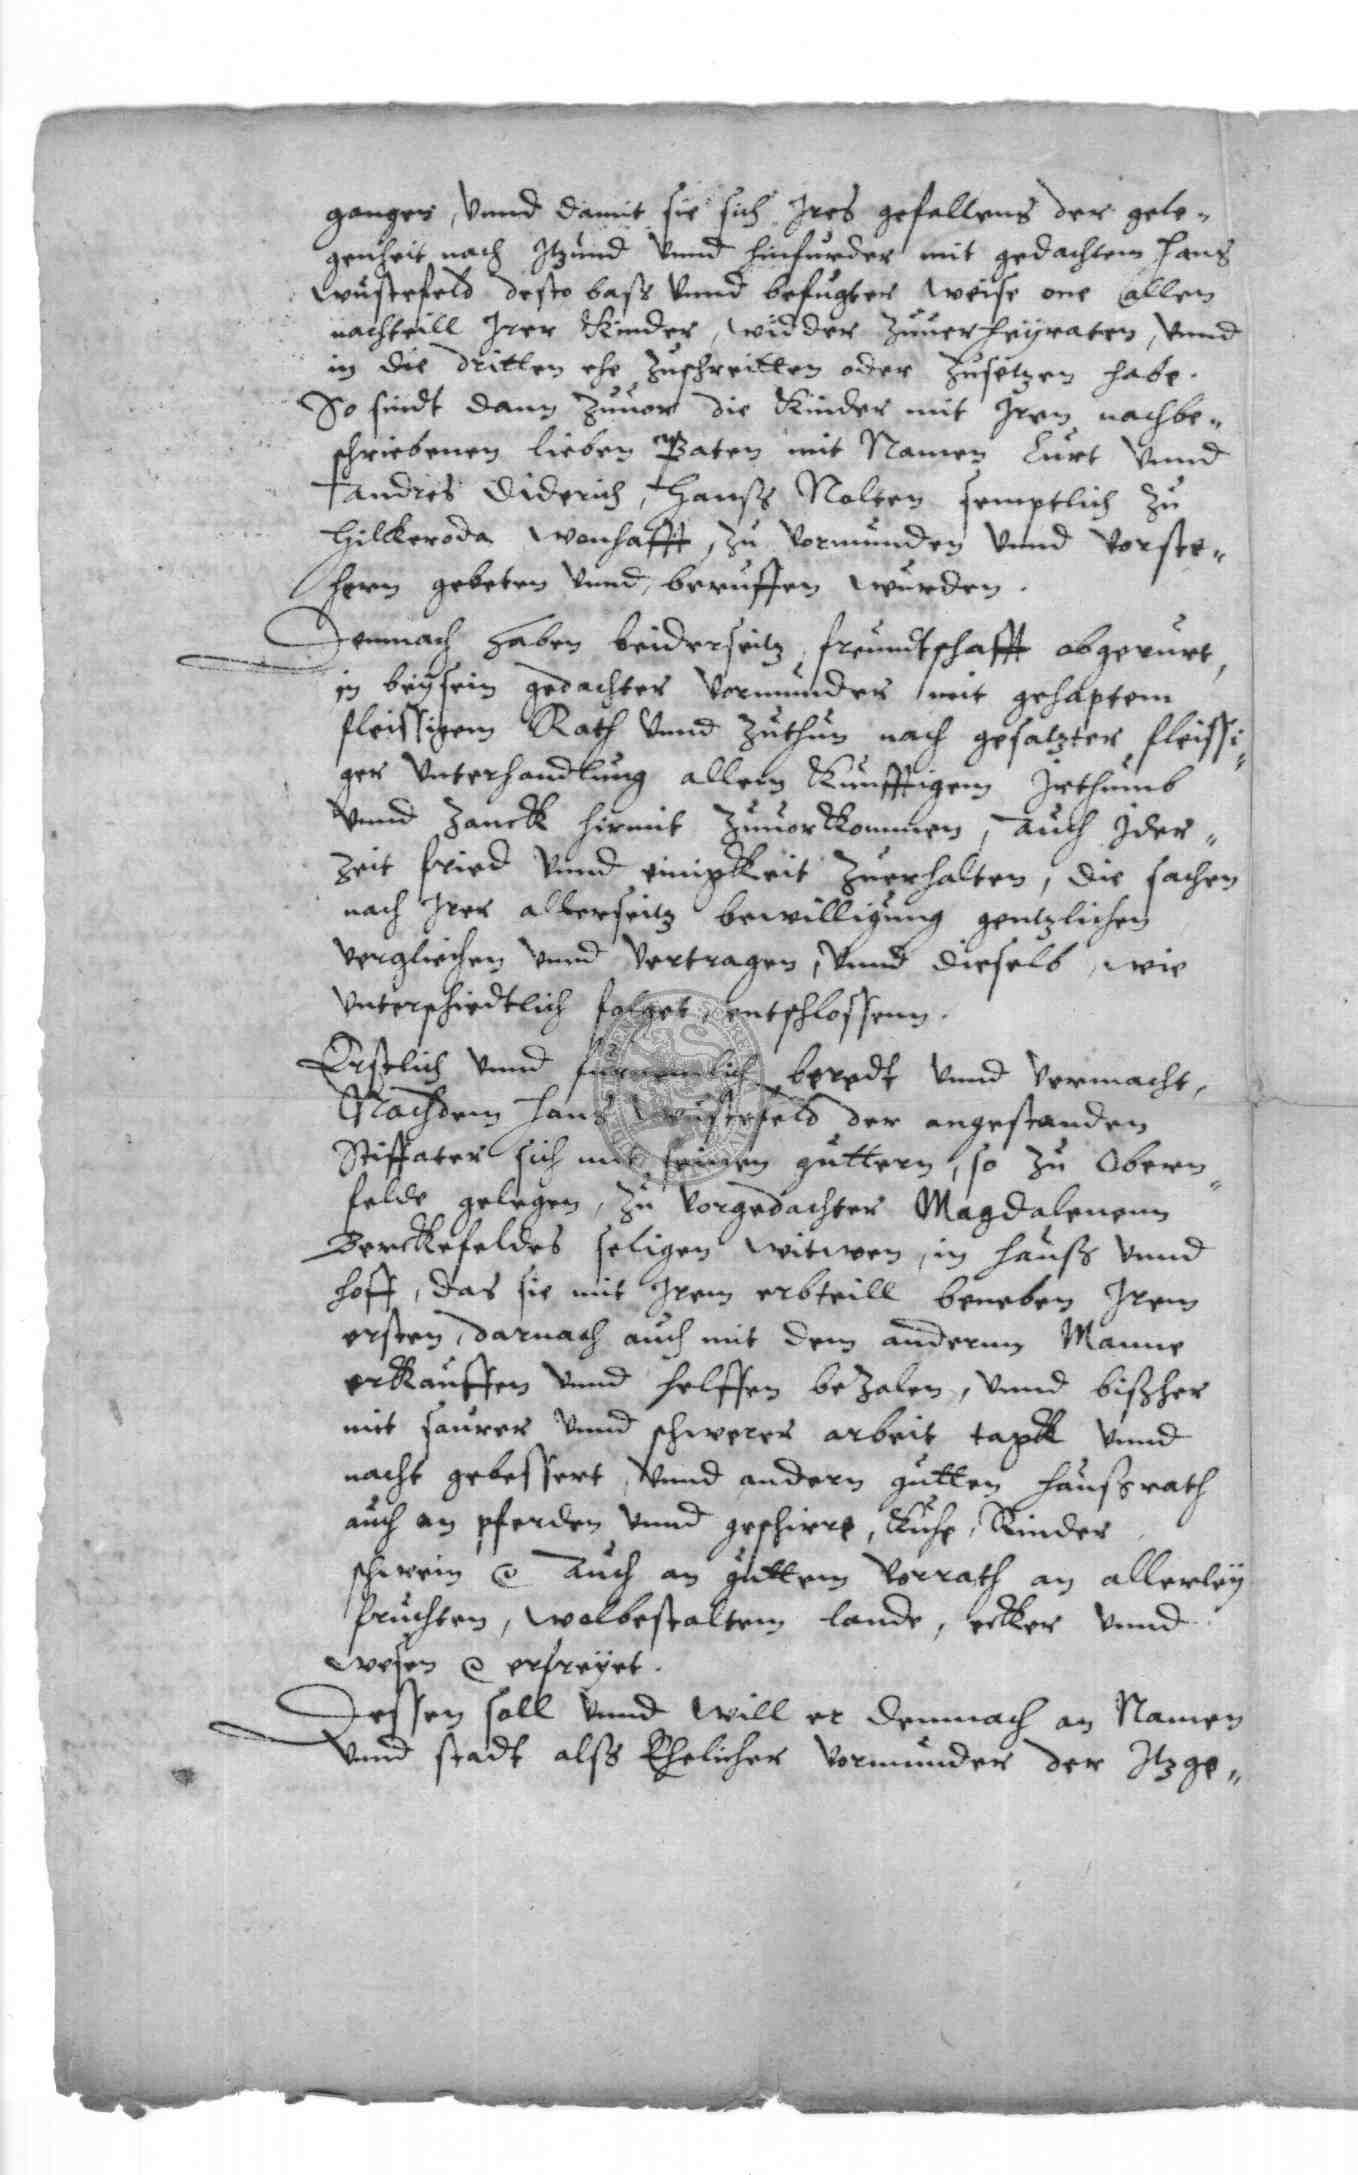 ganger, vnnd damit sie sich Ires gefallens der gele-
genheit nach Itzund vnnd hinfurder mit gedachtem Hans
Wustefeld desto bass vnnd befugter weise one allen
nachteill Irer Kinder, widder zuuerheÿraten, vnnd
in die dritten ehe zuschreitten oder zusetzen habe.
So sindt dann zuuor die Kinder mit Iren nachbe-
schriebenen lieben Paten mit Namen Curt vnnd
Andres Diderich, Hanss Nolten semptlich zu
Hilkeroda wonhafft, zu vormunden vnnd vorste-
hern gebeten vnnd beruffen wurden.
Demnach haben beiderseitz freundtschafft obgerurt,
in beÿsein gedachter vormunder mit gehaptem
fleissigem Rath vnnd zuthun nach gesatzter fleissi-
ger vnterhandlung allem Kunfftigem Irthumb
vnnd Zanck hirmit zuuorkkommen, Auch Ider-
zeit fried vnnd einigkeit zuerhalten, die sachen
nach Irer allerseitz bewilligung gentzlichen
verglichen vnnd vertragen, vnnd dieselb wie
vnterschiedtlich folget, entschlossenn.
Erstlich vnnd furnemlich beredt vnnd vermacht,
Nachdem Hans Wustefeld der angestanden
Stiffater sich mit seinen guttern, so zu Obern-
felde gelegen, zu vorgedachter Magdalenenn
Berckefeldes seligen witwen, in hauss vnnd
hoff, das sie mit Irem erbteill beneben Irem
ersten, darnach auch mit dem andernn Manne
erkauffen vnnd helffen bezalen, vnnd bissher
mit saurer vnnd schwerer arbeit tagk vnnd
nacht gebessert, vnnd andern gutten haussrath
auch an pferden vnnd geschirre, Kuhe, Rinder
schwein & Auch an guttem vorrath an allerleÿ
fruchten, wolbestaltem lande, ecker vnnd
wesen & erfreÿet.
Dessen soll vnnd will er demnach an Namen
vnnd stadt alss Ehelicher vormunder der Itzge-